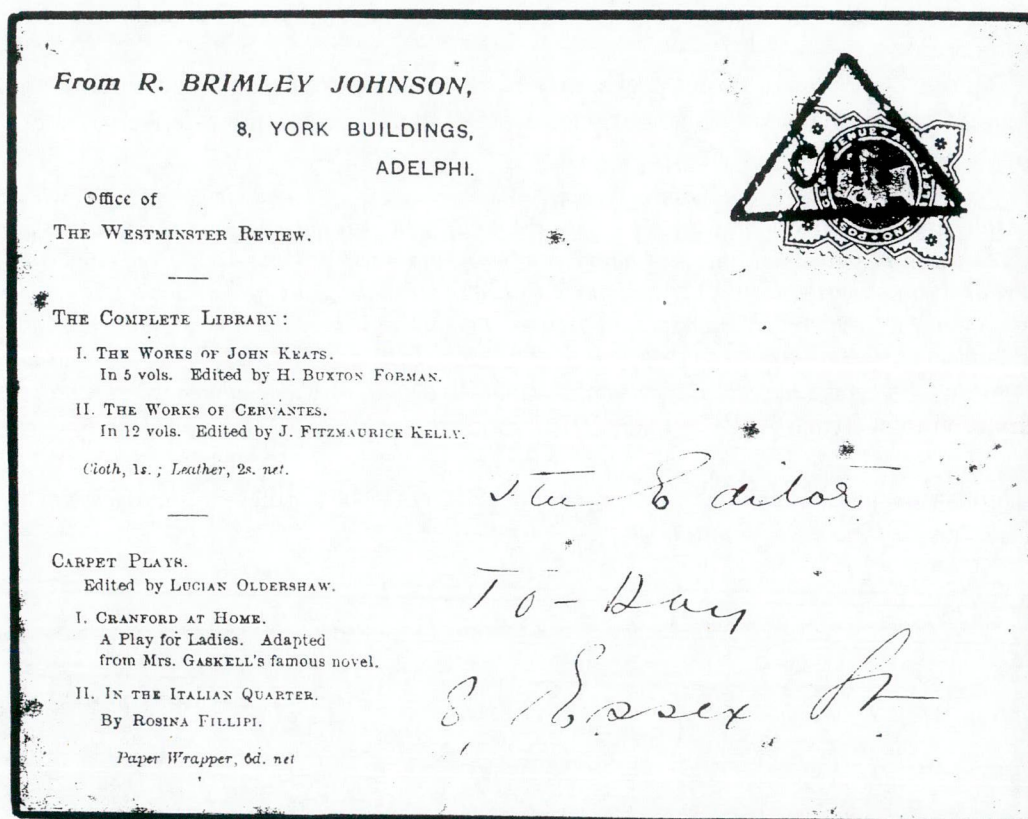 From R. BRIMLEY JOHNSON,
8, YORK BUILDINGS,
ADELPHI.
Office of
THE WESTMINSTER REVIEW.
THE COMPLETE LIBRARY:
I. THE WORKS OF JOHN KEATS.
In 5 vols. Edited by H. BUXTON FORMAN.
II. THE WORKS OF CERVANTES.
In 12 vols. Edited by J. FITZMAURICE KELLY.
Cloth, 1s.; Leather, 2s. net.
CARPET PLAYS.
Edited by LUCIAN OLDERSHAW.
I. CRANFORD AT HOME.
A Play for Ladies. Adapted
from Mrs. GASKELL's famous novel.
II. IN THE ITALIAN QUARTER.
By ROSINA FILLIPI.
Paper Wrapper, 6d. net
The Editor
To-Day
8, Essex St